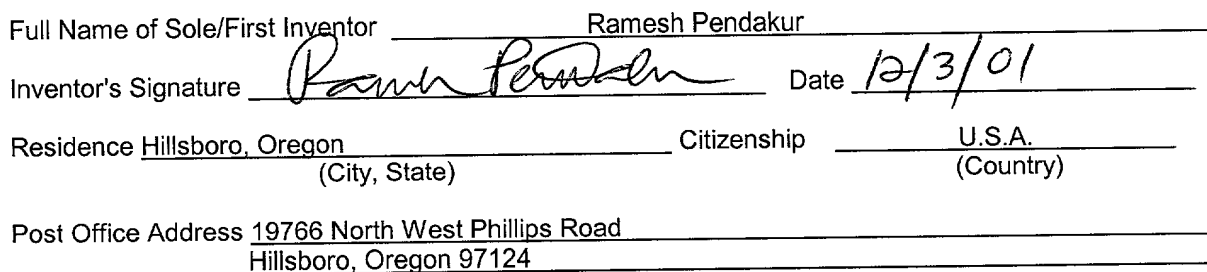 Full Name of Sole/First Inventor Ramesh Pendakur
Inventor's Signature Ramesh Pendakur Date 12/3/01
Residence Hillsboro, Oregon Citizenship U.S.A.
(City, State) (Country)
Post Office Address 19766 North West Phillips Road
Hillsboro, Oregon 97124